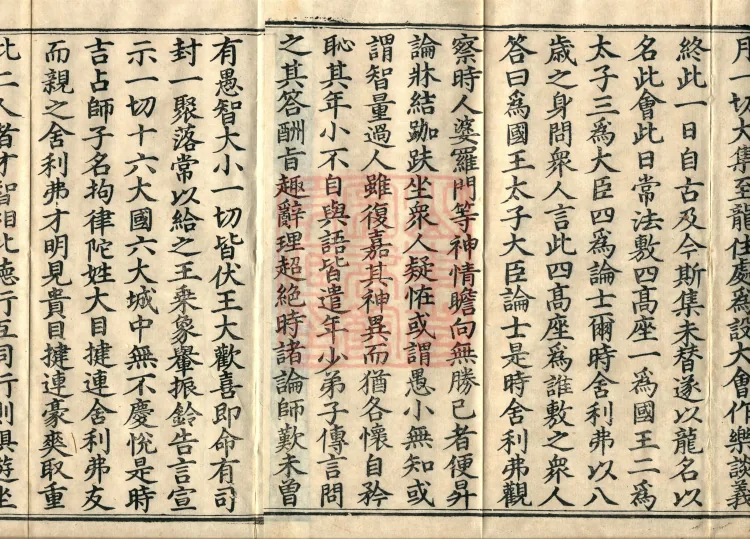 月一切大集至龍住處爲設大會作樂談義
終此一日自古及今斯集未替遂以龍名以
名此會此日常法敷四髙座一爲國王二爲
太子三爲大臣四爲論士爾時舍利弗以八
歲之身問衆人言此四髙座爲誰敷之衆人
答曰爲國王太子大臣論士是時舍利弗觀
察時人婆羅門等神情瞻向無勝己者便昇
論牀結跏趺坐衆人疑恠或謂愚小無知或
謂智量過人雖復嘉其神異而猶各懷自矜
恥其年小不自與語皆遣年少弟子傳言問
之其答酬旨趣辭理超絕時諸論師歎未曾
有愚智大小一切皆伏王大歡喜即命有司
封一聚落常以給之王乗象轝振鈴告言宣
示一切十六大國六大城中無不慶悅是時
吉占師子名拘律陀姓大目揵連舍利弗友
而親之舍利弗才明見貴目揵連豪爽取重
此二人者才智相比德行互同行則俱遊坐